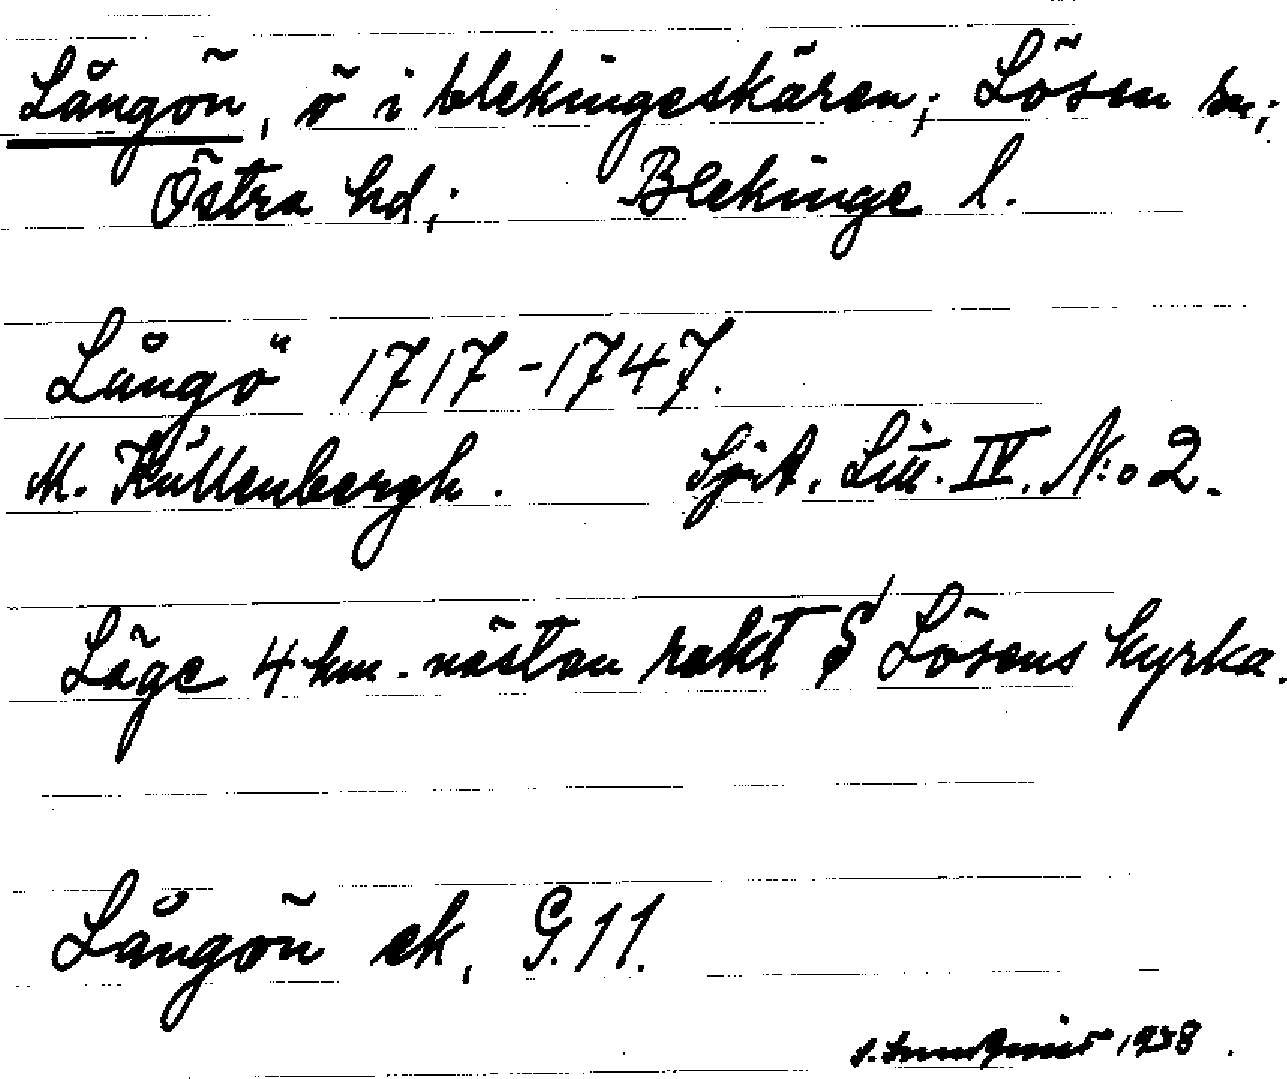 Långön, ö i blekingeskären; Lösen sn;
Östra hd; Blekinge l.
Långö 1717-1747.
M. Küllenbergh. Sjöt. Litt. IV. N:o 2.
Läge 4 km. nästan rakt S Lösens kyrka.
Långön ek, G.11.
1938.